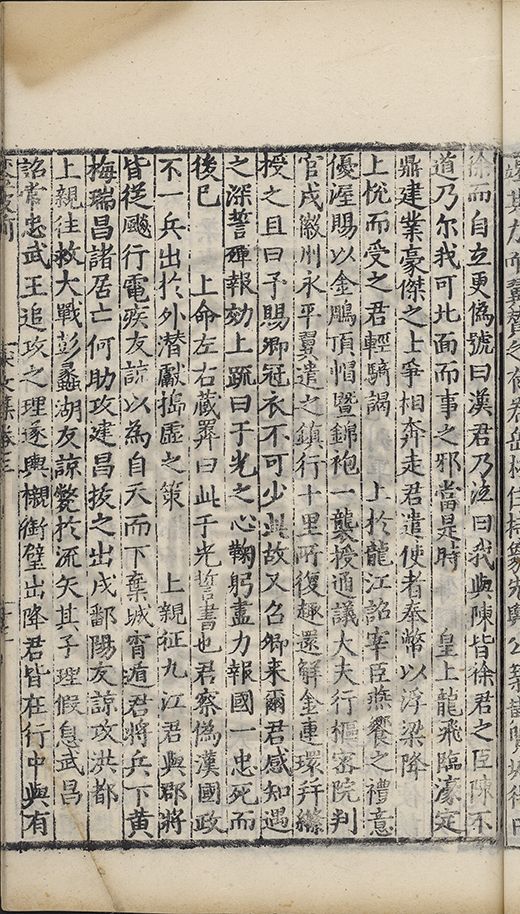 徐而自立更僞號曰漢君乃泣曰我與陳皆徐君之臣陳不
道乃尔我可北面而事之邪當是時　皇上龍飛臨濠定
鼎建業豪傑之士爭相奔走君遣使者奉幣以浮梁降
上悅而受之君輕騎謁　上於龍江詔宰臣燕饗之禮意
優渥賜以金鵰頂帽暨錦袍一襲授通議大夫行樞密院判
官戍徽州永平翼遣之鎮行十里所復趣還解金重環幷縧
授之且曰予賜卿冠衣不可少此故又召卿来爾君感知遇
之深誓殫報効上疏曰于光之心鞠躬盡力報國一忠死而
後已　上命左右藏弆曰此于光誓書也君察僞漢國政
不一兵出於外潛獻搗虛之策　上親征九江君與郡將
皆從飈行電疾友諒以為自天而下棄城宵遁君將兵下黃
梅瑞昌諸砦亡何助攻建昌拔之出戍鄱陽友諒攻洪都
上親往救大戰彭蠡湖友諒斃於流矢其子理假息武昌
詔常忠武王追攻之理遂輿櫬銜璧出降君皆在行中與有